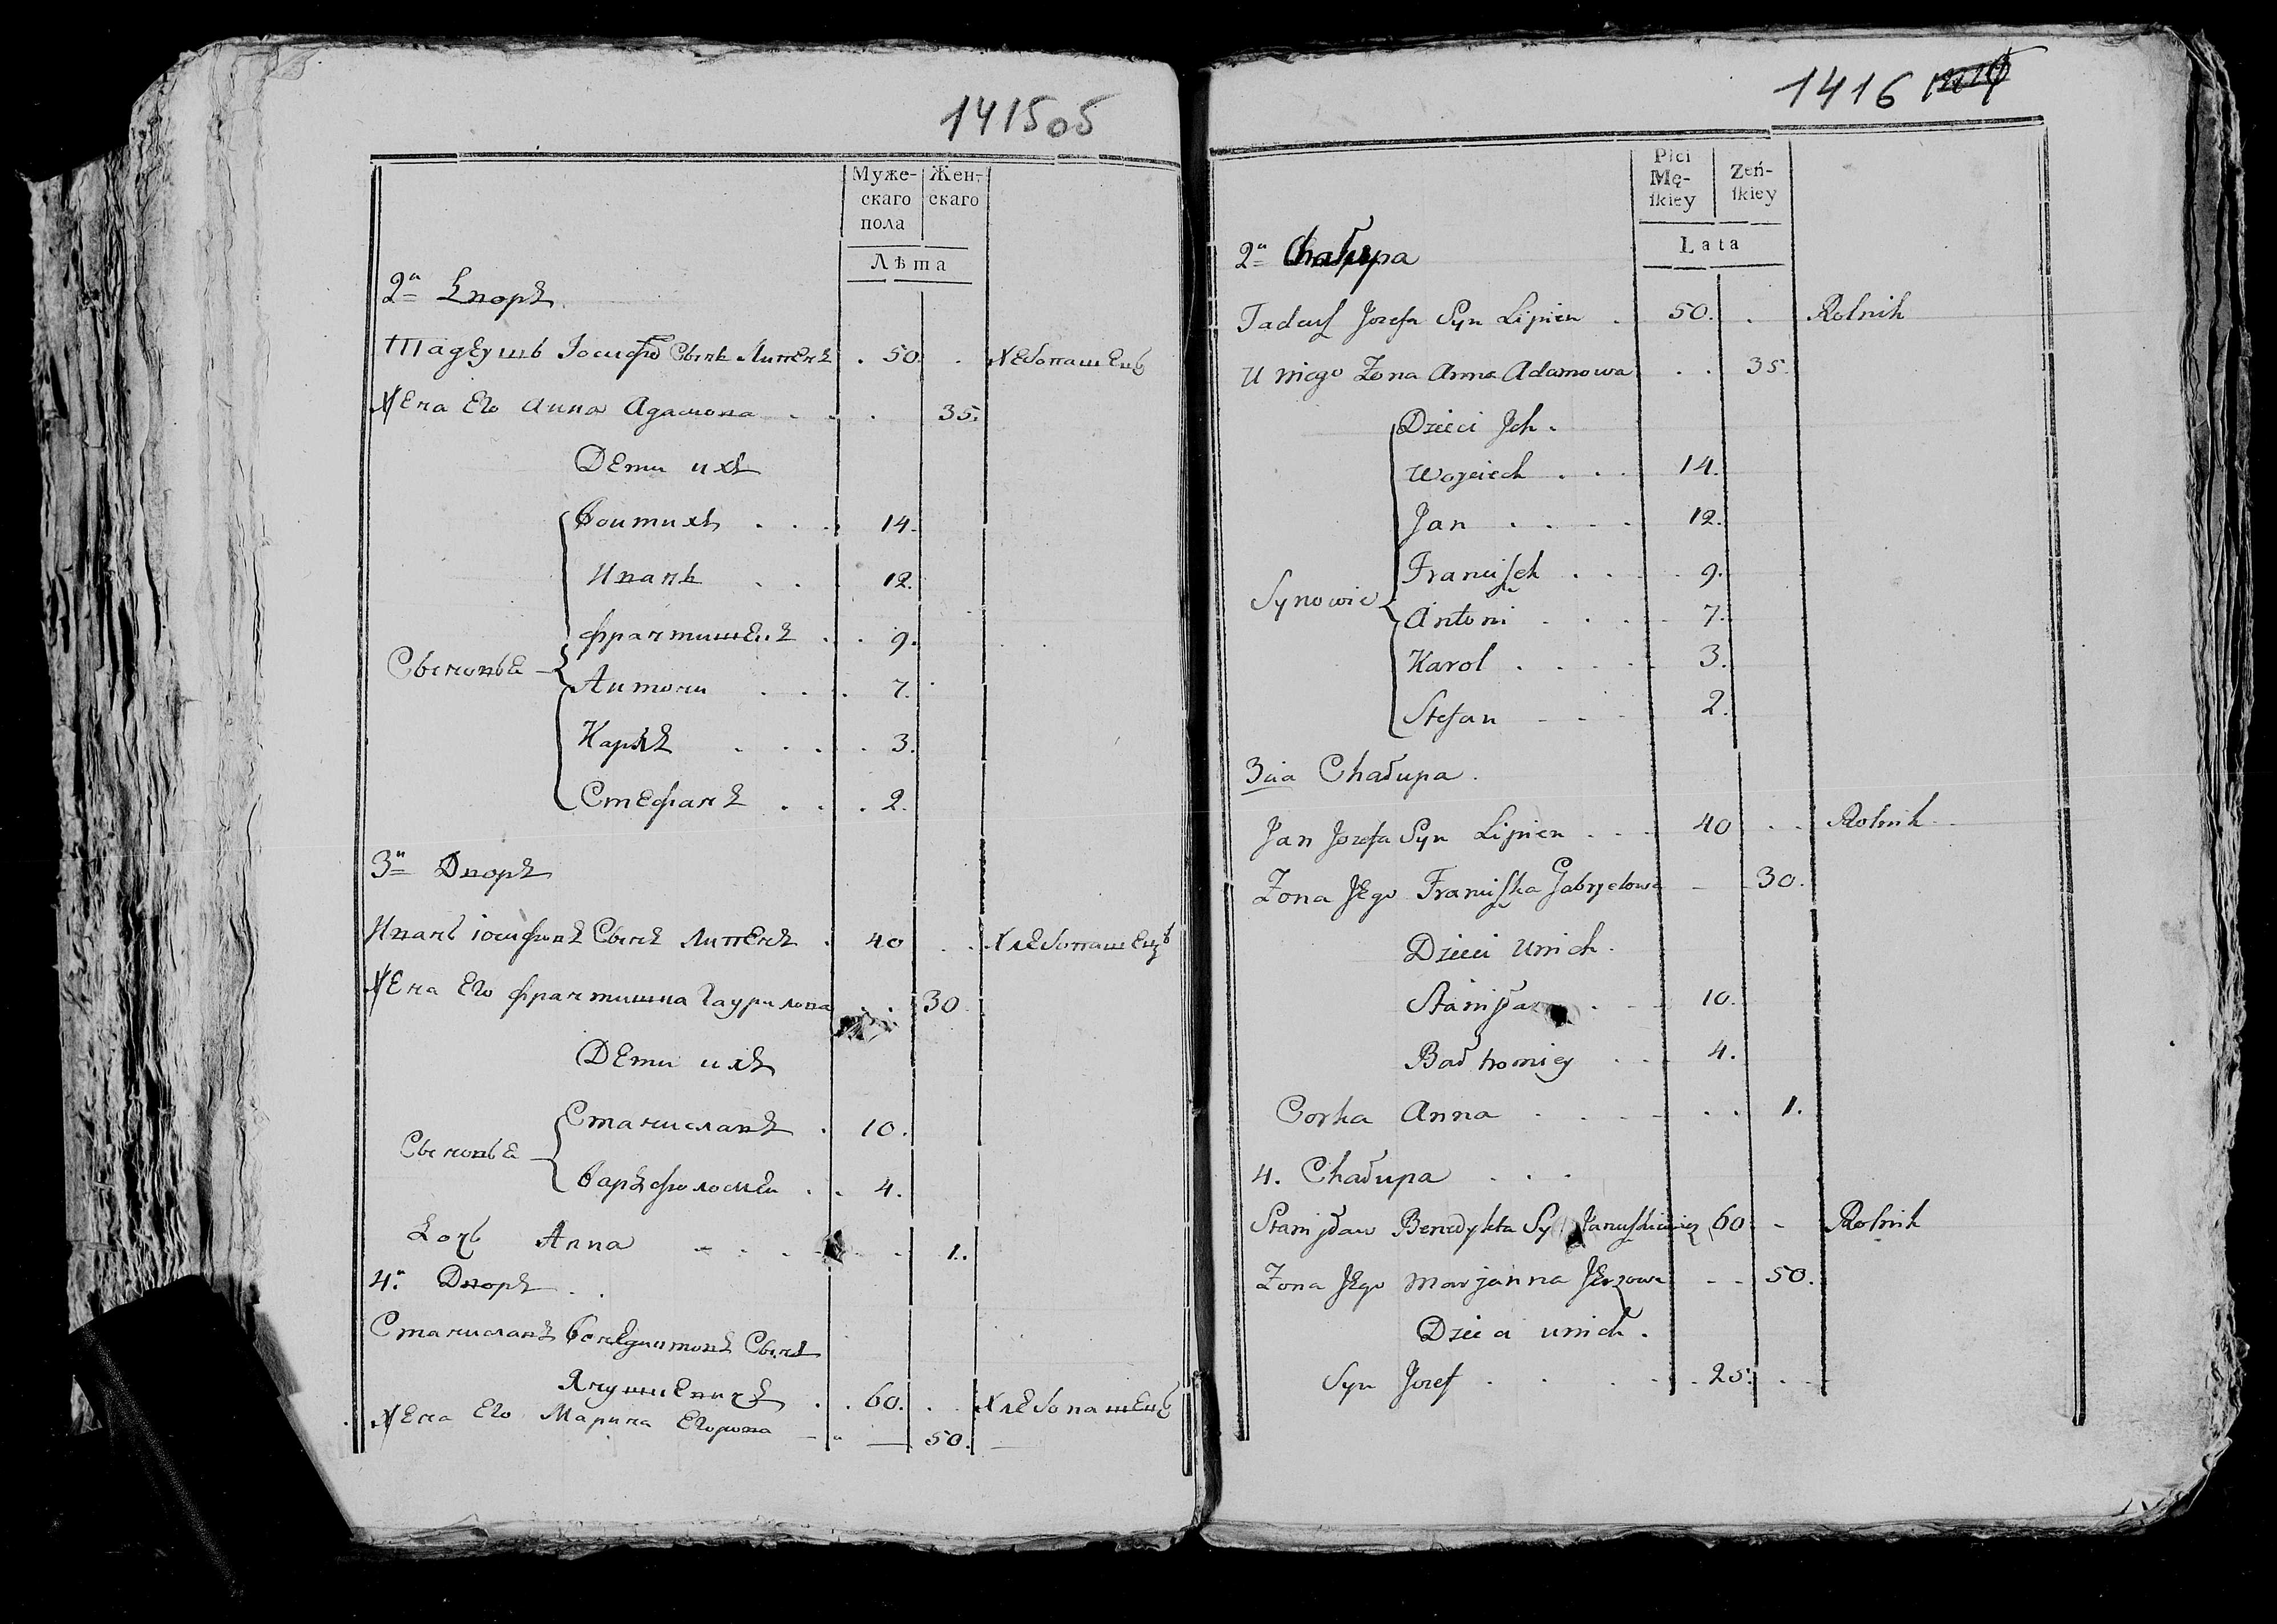 141505
Муже-
скаго
пола
Жен-
скаго
Лѣта
2й Дворъ
Тадеушъ Іосифо Сынъ Липень . 50. . Хебопашецъ
Жена Его Анна Адамова . . . 35.
Дети ихъ
Сыновьѐ
Воитихъ . . . 14.
Иванъ . . 12.
Францишекъ . . 9.
Антони . . . 7.
Карлъ . . . . 3.
Стефанъ . . . 2.
3й Дворъ
Иванъ Іосифовъ Сынъ Липенъ . 40 . . Хлебопашецъ
Жена Его Францишка Гаурилова . . 30
Дети ихъ
Сыновье
Станиславъ . 10.
Варъфоломей . . 4.
Дочь Анна 1.
4й Дворъ . .
Станиславъ Бенедиктовъ Сынъ
Янушкевичъ . . 60. . . Хлебопашецъ
Жена Его Марина Егорова 50.
1416
Płci
Mę-
ſkiey
Zeń-
ſkiey
Lata
2a Chałupa
Tadeuſ Jozefa Syn Lipien . 50. . Rolnik
U niego Zona Anna Adamowa . . 35.
Dzieci Jch .
Synowie
Woyciech . . . 14.
Jan . . . . 12.
Franciſzek . . . 9.
Antoni . . . . 7.
Karol . . . . 3.
Stefan - - - 2.
3cia Chałupa .
Jan Jozefa Syn Lipien . . . 40 . . Rolnik
Zona Jego Franciſzka Gabryelowa - 30.
Dzieci Unich.
Staniſław . - 10.
Bałtromiey . . . 4.
Corka Anna . . . - . . 1.
4. Chałupa . . .
Staniſław Benedykta Syn Januſzkiewicz 60 - Rolnik
Zona Jego Marjanna Jerzowa - - 50.
Dzieci unich .
Syn Jozef . . . . 25. . .